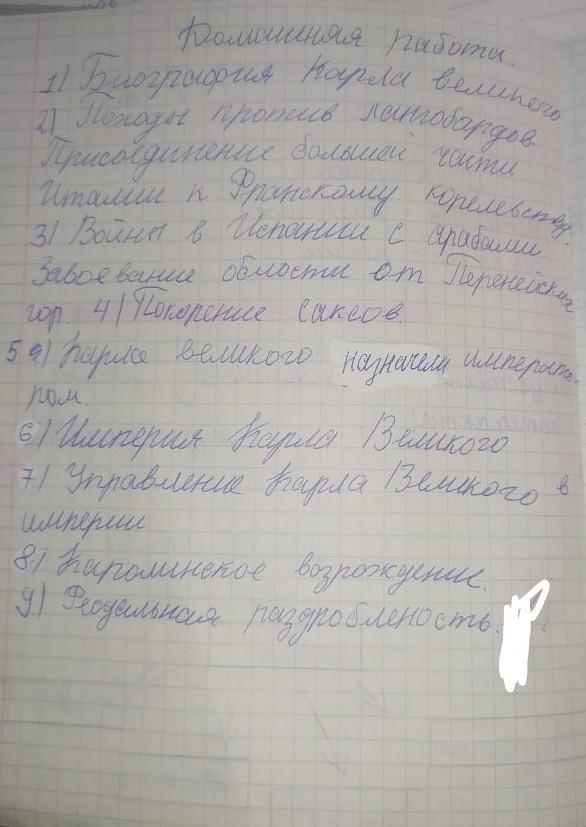 Домашняя работа.
1) Биография Карла великого
2) Походы против лангобардов.
Присоединение большей части
Италии к Франскому королевству.
3) Войны в Испании с арабами.
Завоевание области от Перенейских
гор. 4) Покорение саксов.
5 Карла великого назначели императо-
ром.
6) Империя Карла Великого
7) Управление Карла Великого в
империи
8) Каролинское возрождение.
9) Феодальная раздробленость.